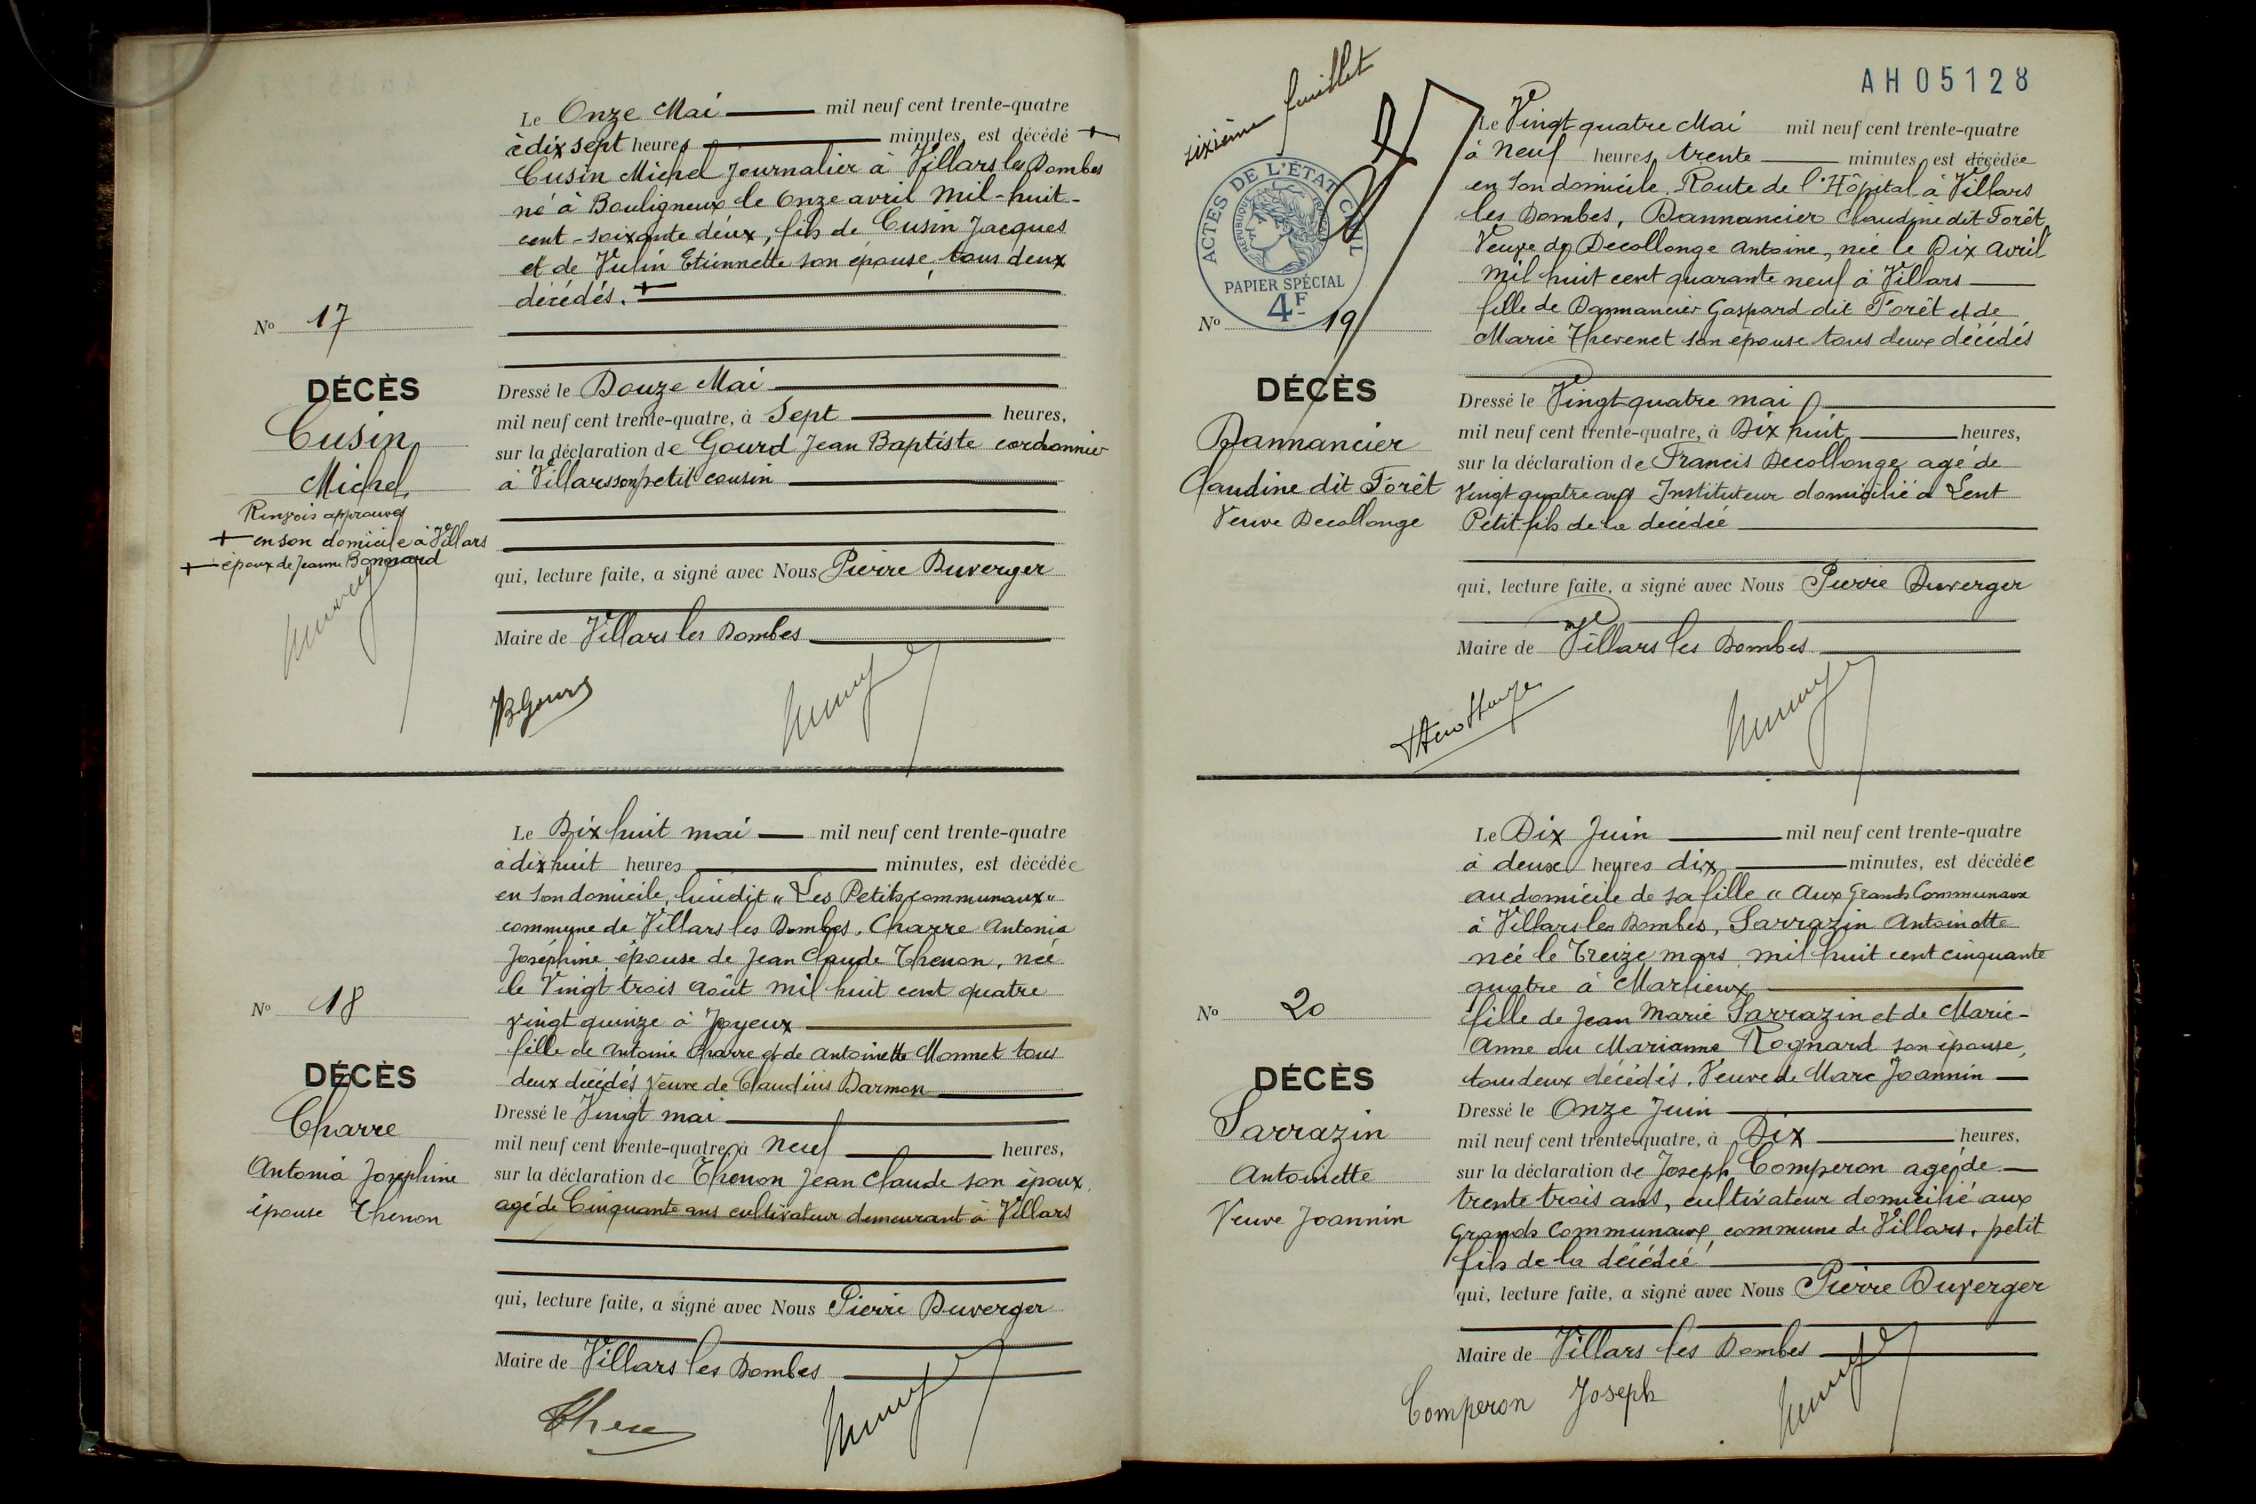 Le Onze Mai mil neuf cent trente-quatre
à dix sept heures minutes, est décédé +
Cusin Michel Journalier à Villars les Dombes
né à Bouligneux le Onze avril Mil-huit-
cent-soixante deux, fils de Cusin Jacques
et de Vulin Etiennette son épouse, tous deux
décédés. +
No 17
DÉCÈS
Cusin
Michel
Renvois approuvés
+ en son domicile à Villars
+ époux de Jeanne Bonnard
Dressé le Douze Mai
mil neuf cent trente-quatre, à Sept heures,
sur la déclaration de Gourd Jean Baptiste cordonnier
à Villars son petit cousin
qui, lecture faite, a signé avec Nous Pierre Duverger
Maire de Villars les Dombes
JB Gourd
Le Dix huit mai mil neuf cent trente-quatre
à dix huit heures minutes, est décédée
en son domicile, lieudit "Les Petits communaux"
commune de Villars les Dombes, Charre Antonia
Joséphine épouse de Jean Claude Thenon, née
le Vingt trois Août Mil huit cent quatre
vingt quinze à Joyeux
fille de Antoine Charre et de Antoinette Monnet tous
deux décédés veuve de Claudius Darmon
No 18
DÉCÈS
Charre
Antonia Joséphine
épouse Thenon
Dressé le Vingt mai
mil neuf cent trente-quatre, à neuf heures,
sur la déclaration de Thenon Jean Claude son époux,
agé de Cinquante ans cultivateur demeurant à Villars
qui, lecture faite, a signé avec Nous Pierre Duverger
Maire de Villars les Dombes
sixième feuillet
AH05128
ACTES DE L'ÉTAT CIVIL
RÉPUBLIQUE
PAPIER SPÉCIAL
4F
Le Vingt quatre Mai mil neuf cent trente-quatre
à Neuf heures trente minutes, est décédée
en son domicile Route de l'Hôpital à Villars
les Dombes, Dannancier Claudine dit Forêt
Veuve de Decollonge Antoine, née le Dix Avril
Mil huit cent quarante neuf à Villars
fille de Dannancier Gaspard dit Forêt et de
Marie Thevenet son épouse tous deux décédés
No 19
DÉCÈS
Dannancier
Claudine dit Forêt
Veuve Decollonge
Dressé le Vingt quatre mai
mil neuf cent trente-quatre, à Dix huit heures,
sur la déclaration de Francis Decollonge agé de
vingt quatre ans Instituteur domicilié à Lent
Petit fils de la décédée
qui, lecture faite, a signé avec Nous Pierre Duverger
Maire de Villars les Dombes
Le Dix Juin mil neuf cent trente-quatre
à deux heures dix minutes, est décédée
au domicile de sa fille "Aux Grands Communaux
à Villars les Dombes, Sarrazin Antoinette
née le Treize mars mil huit cent cinquante
quatre à Marlieux
fille de Jean Marie Sarrazin et de Marie-
Anne ou Marianne Rognard son épouse,
tou deux décédés. Veuve de Marc Joannin
No 20
DÉCÈS
Sarrazin
Antoinette
Veuve Joannin
Dressé le Onze Juin
mil neuf cent trente-quatre, à Dix heures,
sur la déclaration de Joseph Comperon agé de
trente trois ans, cultivateur domicilié aux
Grands Communaux, commune de Villars, petit
fils de la décédée
qui, lecture faite, a signé avec Nous Pierre Duverger
Maire de Villars les Dombes
Comperon Joseph